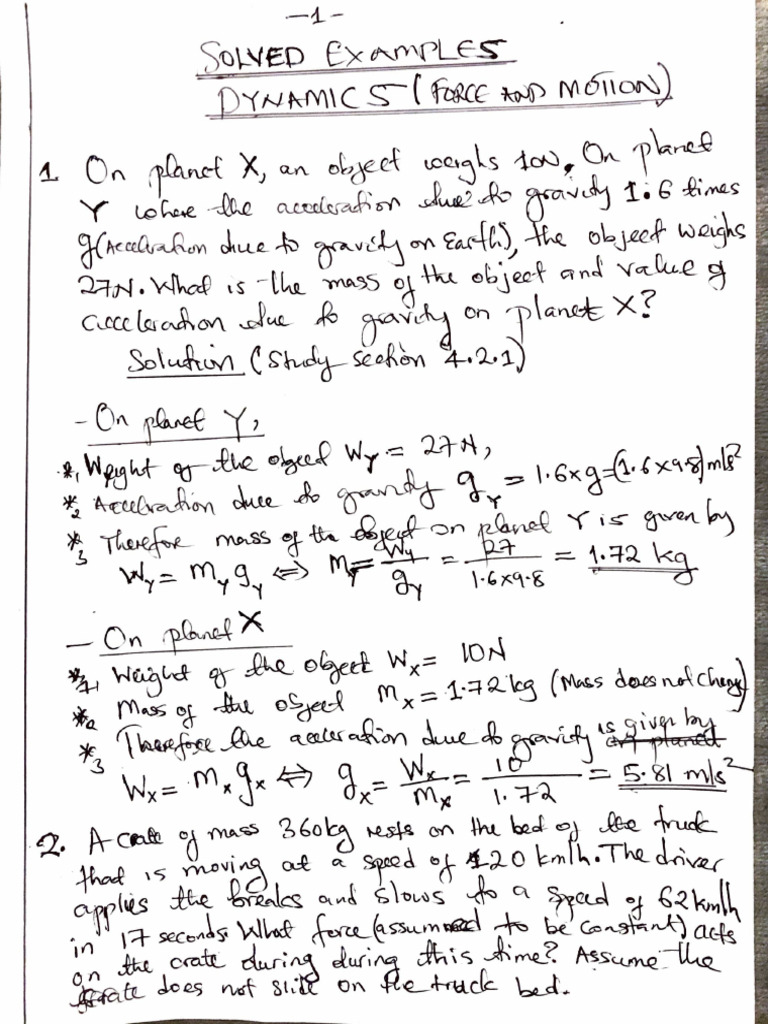 -1-
SOLVED EXAMPLES
DYNAMICS (FORCE AND MOTION)
1. On planet X, an object weighs 10N. On planet
Y where the acceleration due to gravity 1.6 times
g(Acceleration due to gravity on Earth), the object weighs
27N. What is the mass of the object and value of
acceleration due to gravity on planet X?
Solution (Study section 4.2.1)
- On planet Y,
*1 Weight of the object Wy = 27N,
*2 Acceleration due to gravity gy = 1.6xg=(1.6x9.8)m/s²
*3 Therefore mass of the object on planet Y is given by
Wy = my gy ⇔ my = Wy/gy = 27/1.6x9.8 = 1.72 kg
- On planet X
*1, Weight of the object Wx = 10N
*2 Mass of the object mx = 1.72kg (Mass does not change)
*3 Therefore the acceleration due to gravity is given by
Wx = mx gx ⇔ gx = Wx/mx = 10/1.72 = 5.81 m/s²
2. A crate of mass 360kg rests on the bed of the truck
that is moving at a speed of 120 km/h. The driver
applies the breaks and slows to a speed of 62km/h
in 17 seconds. What force (assumed to be constant) acts
on the crate during during this time? Assume the
crate does not slide on the truck bed.